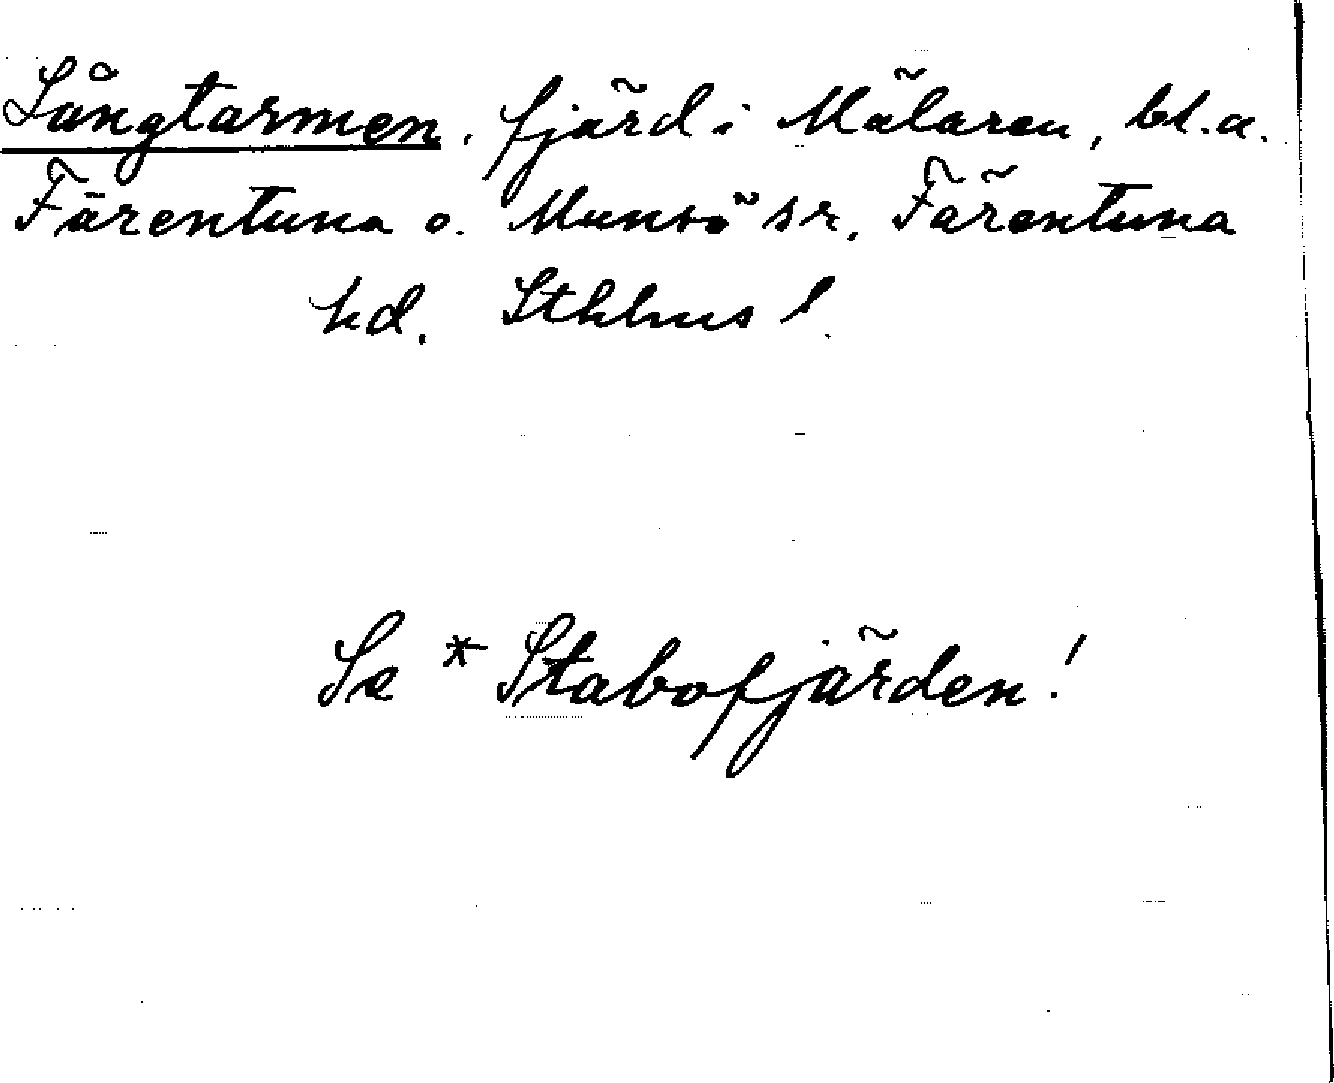 Långtarmen, fjärd i Mälaren, bl.a.
Färentuna o. Munsö sr, Färentuna
hd. Sthlms l.
Se *Stabofjärden!